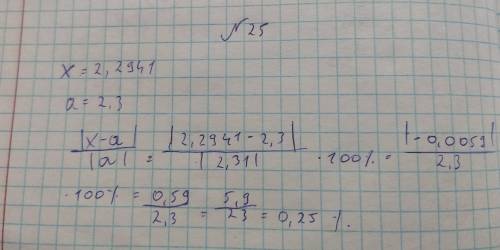 №25
x = 2,2941
a = 2,3
|x-a| / |a| = |2,2941 - 2,3| / |2,31| · 100% = |-0,0059| / 2,3
· 100% = 0,59 / 2,3 = 5,9 / 23 = 0,25 %.